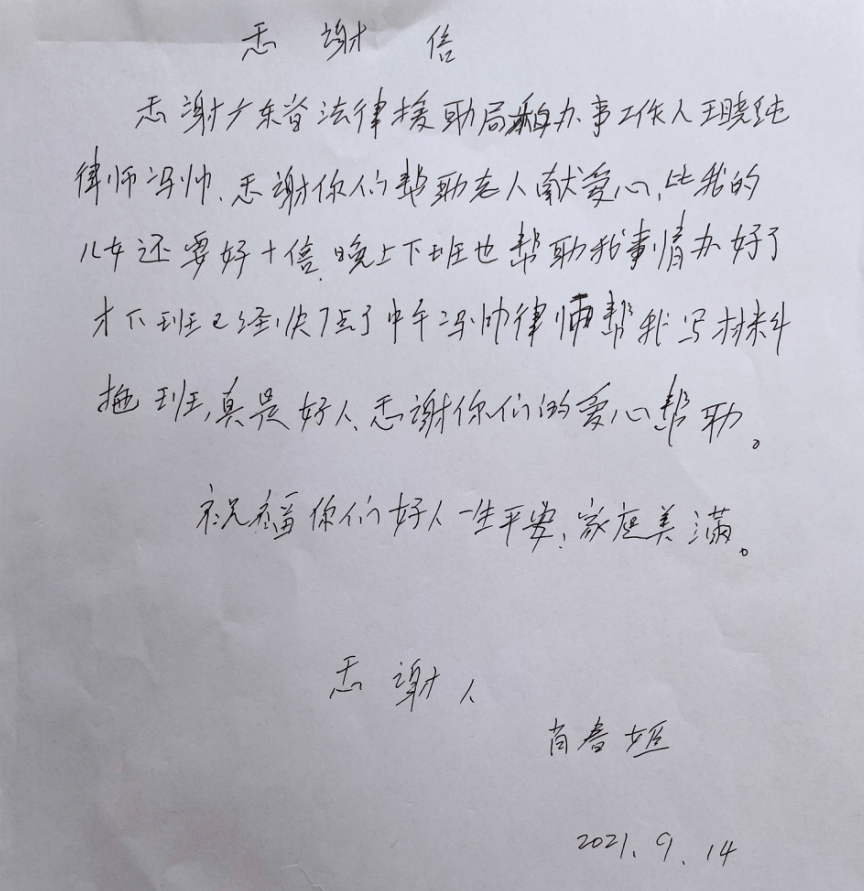 忎谢信
忎谢广东省法律援助局和办事工作人王晓纯
律师冯帅、忎谢你们帮助老人献爱心,比我的
儿女还要好十倍.晚上下班也帮助我事情办好了
才下班已经快7点了中午冯帅律师帮我写材料
拖班,真是好人、忎谢你们的爱心帮助。
祝福你们好人一生平安,家庭美满。
忎谢人
肖春姬
2021.9.14